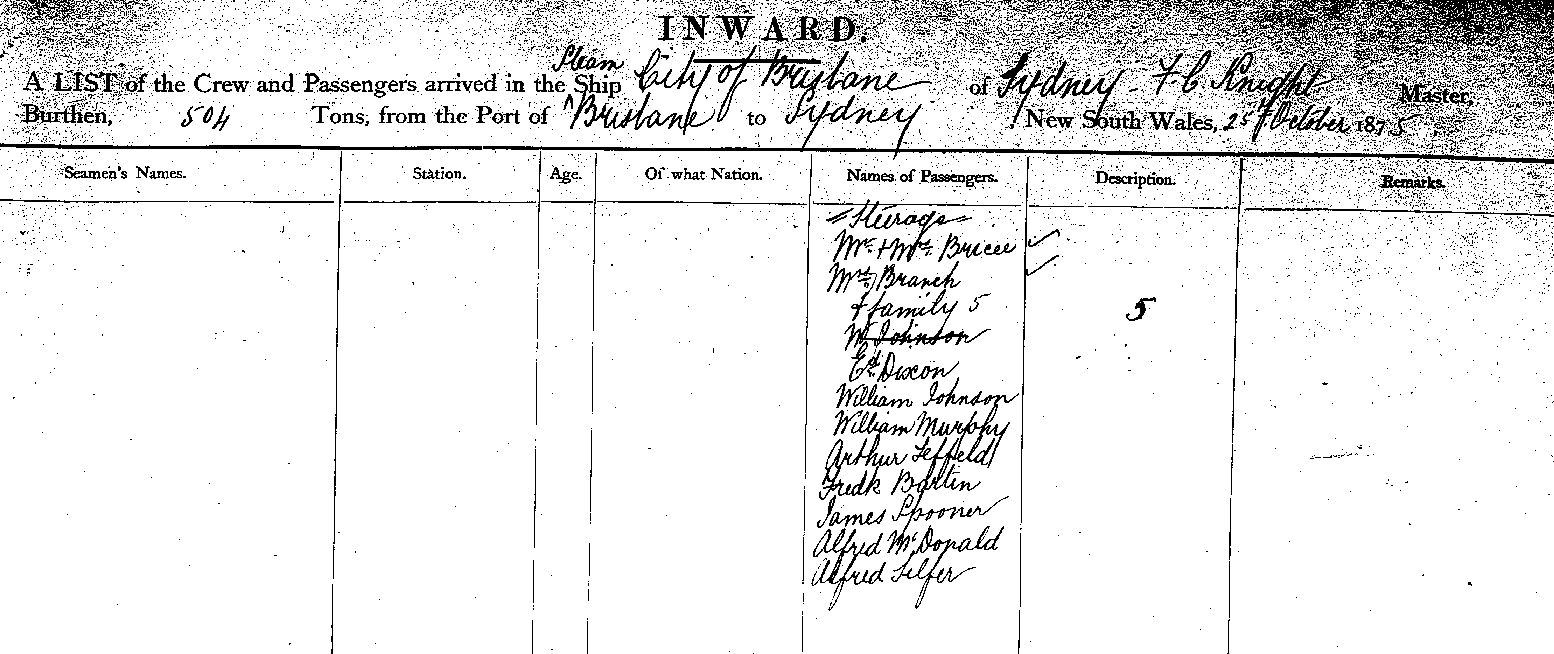 INWARD.
Steam
A LIST of the Crew and Passengers arrived in the Ship City of Brisbane of Sydney - F C Knight Master,
Burthen, 504 Tons, from the Port of Brisbane to Sydney New South Wales, 25th October 1875
Seamen's Names. Station. Age. Of what Nation. Names of Passengers. Description. Remarks.
Steerage
Mr. + Mrs. Bricee
Mrs Branch
+ family 5 5
W. Johnson
Ed. Dixon
William Johnson
William Murphy
Arthur
Fredk Bartin
James Spooner
Alfred McDonald
Alfred